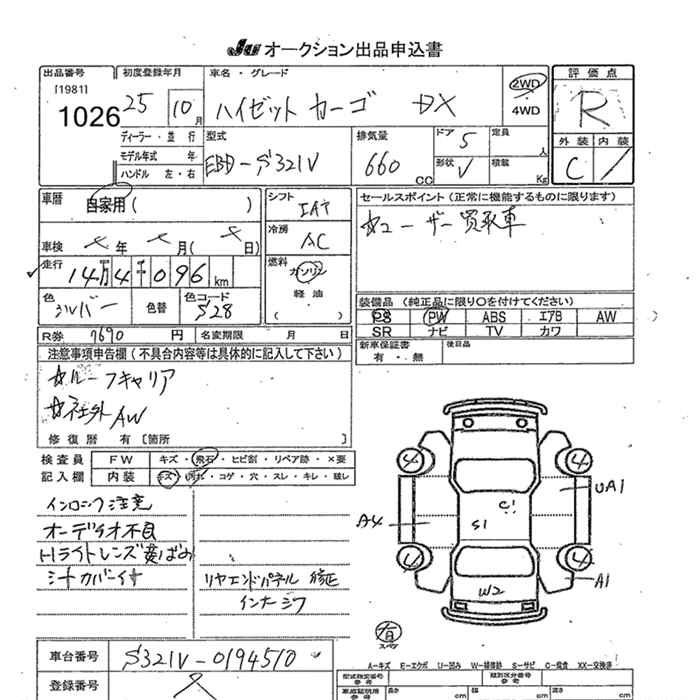 JU オークション出品申込書
出品番号 初度登録年月 車名・グレード 評価点
[1981]
1026 25 10月 ハイゼット カーゴ DX 2WD 4WD R
ディーラー・並行 型式 排気量 ドア 5 定員 人 外装 内装
モデル年式 年 EBD-S321V 660cc 形状 V 積載 Kg C /
ハンドル 左・右
車歴 自家用( ) シフト IAT セールスポイント(正常に機能するものに限ります)
車検 年 月( 日) 冷房 AC ☆ユーザー買取車
走行 14万4千096km 燃料 ガソリン
軽油
( )
色 シルバー 色替 色コード S28 装備品(純正品に限り○を付けてください)
PS PW ABS エアB AW
R券 7690円 名変期限 月 日 SR ナビ TV カワ
注意事項申告欄(不具合内容等は具体的に記入して下さい) 新車保証書 後日品
有・無
☆ルーフキャリア
☆社外AW
修復歴 有〔箇所 〕
検査員 FW キズ・飛石・ヒビ割・リペア跡・×要
記入欄 内装 キズ・汚れ・コゲ・穴・スレ・キレ・破レ
インロック注意
オーディオ不良
Hライトレンズ黄ばみ
シートカバー付
リヤエンドパネル 修正
インナーシワ
4 4
UA1
C1
A4 S1
4 4
A1
W2
有
スペア
車台番号 S321V-0194510
登録番号
A-キズ E-エクボ U-凹み W-補修跡 S-サビ C-腐食 XX-交換済
型式指定番号 類別区分番号
参考 参考
車庫証明用 長さ cm 幅 cm 高さ cm